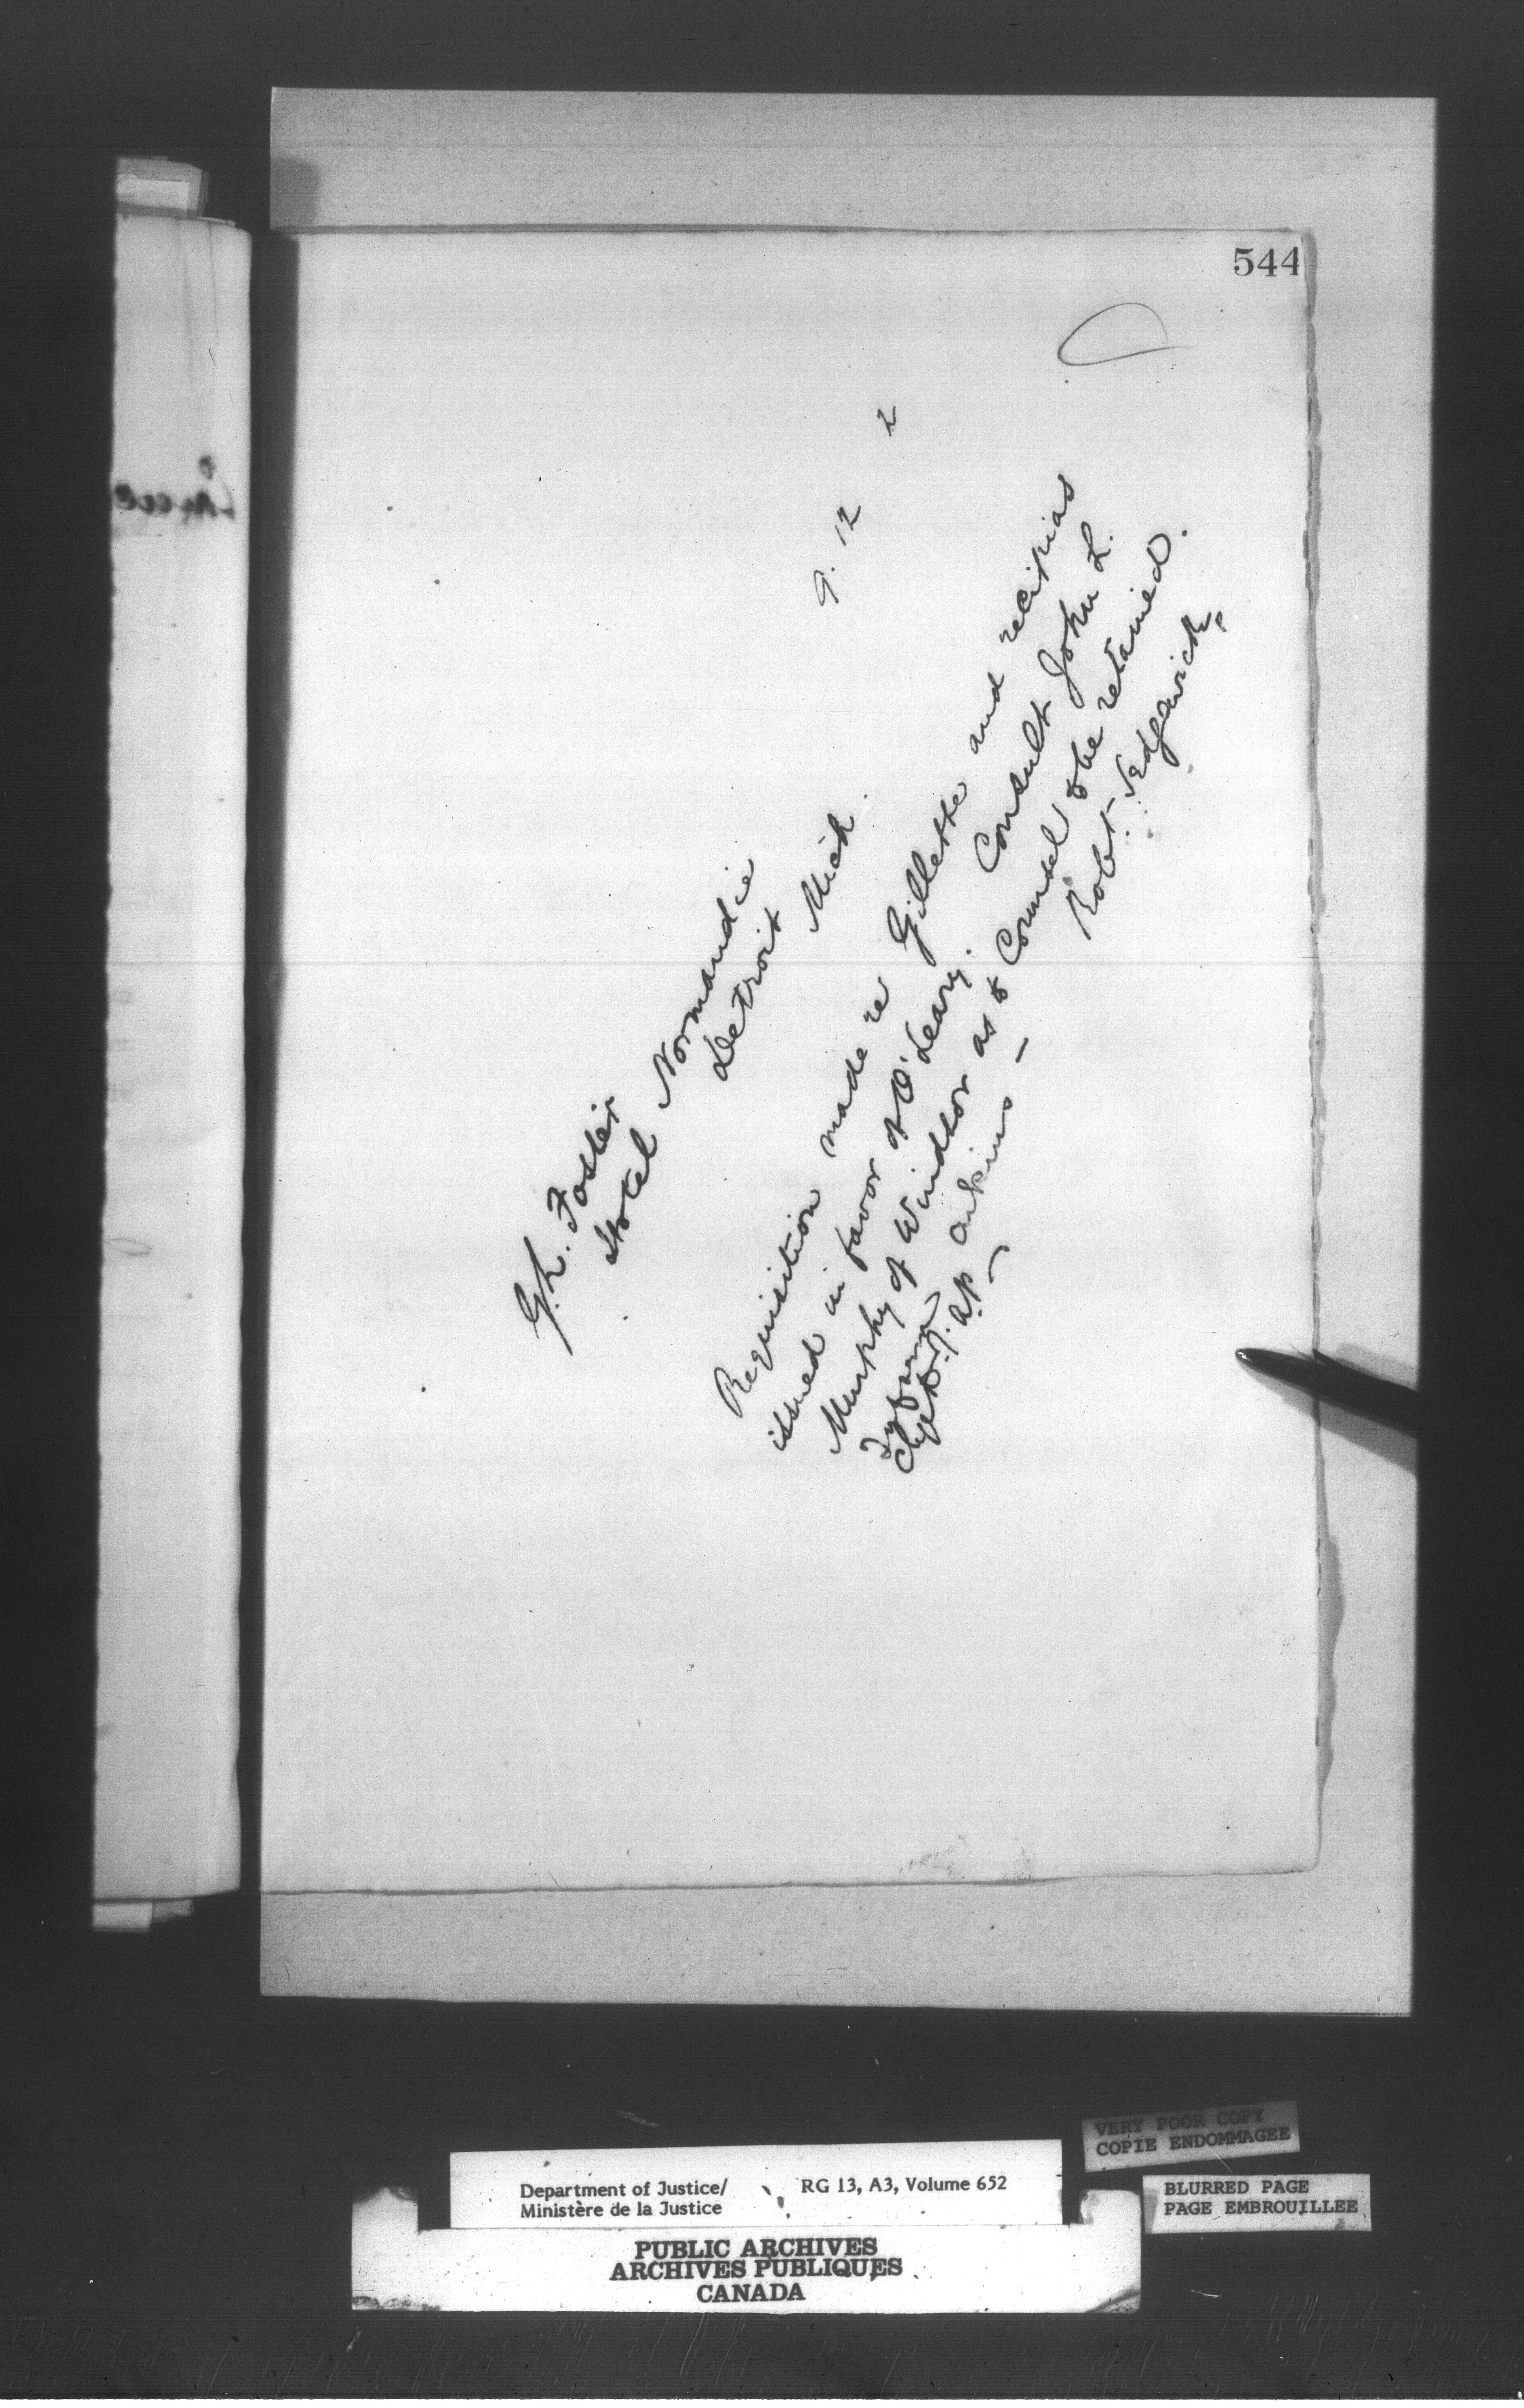 544
9. 12 2
G.L. Foster
Hotel Normandie
Detroit Mich.
Requisition made re Gillette and recipias
issued in favor of O'Leary. Consult John L.
Murphy of Windsor as to Counsel to be retained.
Robt. Sedgewick.
Chge D.J. a/c
VERY POOR COPY
COPIE ENDOMMAGEE
Department of Justice/ RG 13, A3, Volume 652
Ministère de la Justice
BLURRED PAGE
PAGE EMBROUILLEE
PUBLIC ARCHIVES
ARCHIVES PUBLIQUES
CANADA